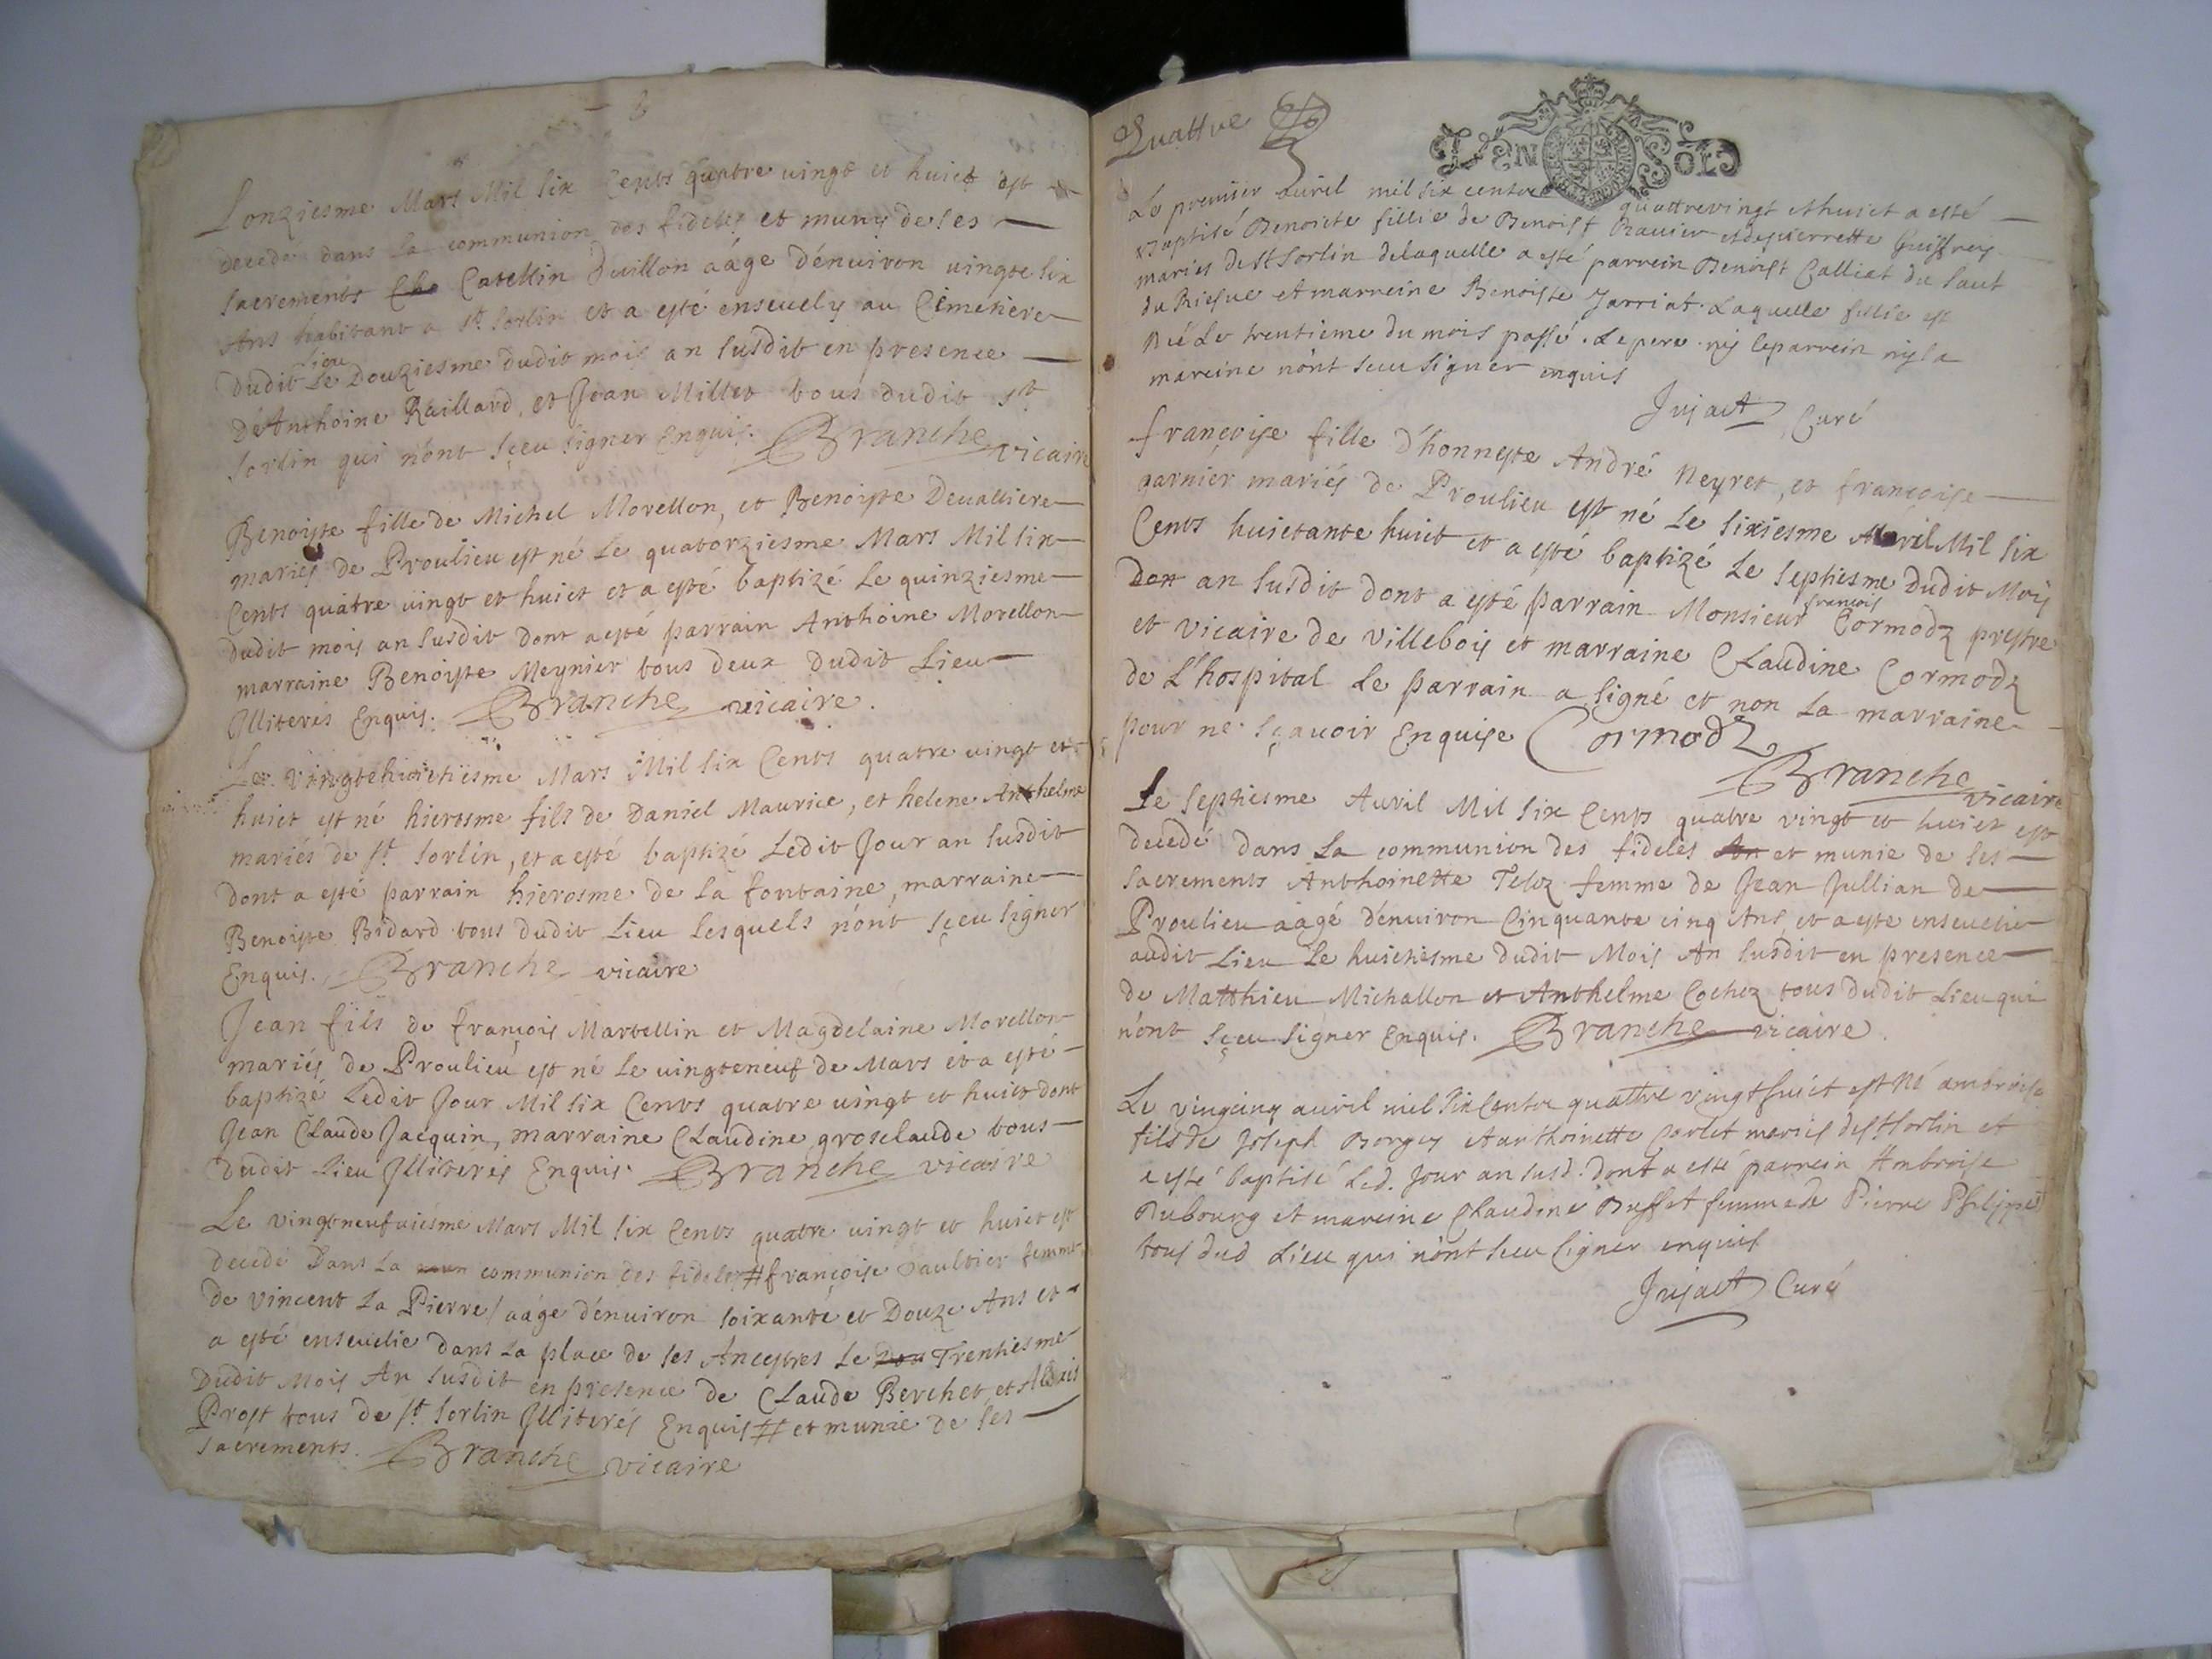 3
Lonziesme Mars Mil six Cents quatre vingt et huict est
decedé dans la communion des fideles et muny de ses
sacrements Catellin Duillon aâge d'enuiron vingte six
Ans habitant a St Sorlin et a esté enseuely au Cimetiere
dudit Lieu Le Douziesme dudit mois an susdit en presence
d'Anthoine Raillard, et Jean Millet tous dudit St
Sorlin qui n'ont sçeu signer Enquis. Branche vicaire
Benoiste fille de Michel Morellon, et Benoiste Devalliere
mariés de Proulieu est né Le quatorziesme Mars Mil six
Cents quatre vingt et huict et a esté baptizé Le quinziesme
dudit mois an susdit dont a esté parrain Anthoine Morellon
marraine Benoiste Meynier tous deux dudit Lieu
Jlliterés Enquis. Branche vicaire.
Le vingtehuictiesme Mars Mil six Cents quatre vingt et
huict est né hierosme fils de Daniel Maurice, et helene Anthelme
mariés de St Sorlin, et a esté baptizé Ledit Jour an susdit
dont a esté parrain hierosme de la fontaine, marraine
Benoiste Bidard tous dudit Lieu Lesquels n'ont sçeu signer
Enquis. Branche vicaire
Jean fils de françois Martellin et Magdelaine Morellon
mariés de Proulieu est né Le vingteneuf de Mars et a esté
baptizé Ledit Jour Mil six Cents quatre vingt et huict dont
Jean Claude Jacquin, marraine Claudine groselaude tous
dudit Lieu Jlliterés Enquis. Branche vicaire
Le vingtneufuiesme Mars Mil six Cents quatre vingt et huict est
decedé Dans La communion des fideles # françoise Gaultier femme
de vincent La Pierre / aâge d'enuiron soixante et Douze Ans et
a esté enseuelie dans la place de ses Ancestres Le Trentiesme
Dudit Mois An susdit en presence de Claude Berchet et
Prost tous de St Sorlin Jlliterés Enquis # et munie de ses
sacrements. Branche vicaire
Quattre
DEN SOLS
Le premier auril mil six cents quattrevingt et huict a esté
Baptisé Benoiste fillie de Benoist Ravier et de pierrette
maries de St Sorlin de laquelle a esté parrein Benoist Calliat du Saut
du Riesue et marreine Benoiste Jarriat. Laquelle fillie est
Né Le trentieme du mois passé. Le pere ny le parrein ny la
mareine n'ont sceu signer enquis
Jujact Curé
françoise fille d'honneste André Neyret, et françoise
garnier mariés de Proulieu est né Le sixiesme Avril Mil six
Cents huictante huict et a esté baptizé Le septiesme dudit Mois
an susdit dont a esté parrain Monsieur françois Cormodz prestre
et vicaire de villebois et marraine Claudine Cormodz
de L'hospital Le parrain a signé et non La marraine
pour ne sçauoir Enquise Cormodz
Branche vicaire
Le septiesme Auril Mil six Cents quatre vingt et huict est
decedé dans La communion des fideles et munie de ses
sacrements Anthoinette Teloz femme de Jean Jullian de
Proulieu aâgé d'enuiron Cinquante cinq Ans, et a este enseuelie
audit Lieu Le huictiesme dudit Mois An susdit en presence
de Matthieu Michallon et Anthelme Cochoz tous dudit Lieu qui
n'ont sçeu signer Enquis. Branche vicaire.
Le vingcinq auril mil six Cents quattre vingt huict est Né ambroise
fils de Joseph Borgey et anthoinette Corlet mariés de St Sorlin et
a esté baptisé led. Jour an susd. dont a esté parrein Ambroise
Dubourg et mareine Claudine Buffet femme de Pierre Philippe
tous dud Lieu qui n'ont sceu signer enquis
Jujact Curé